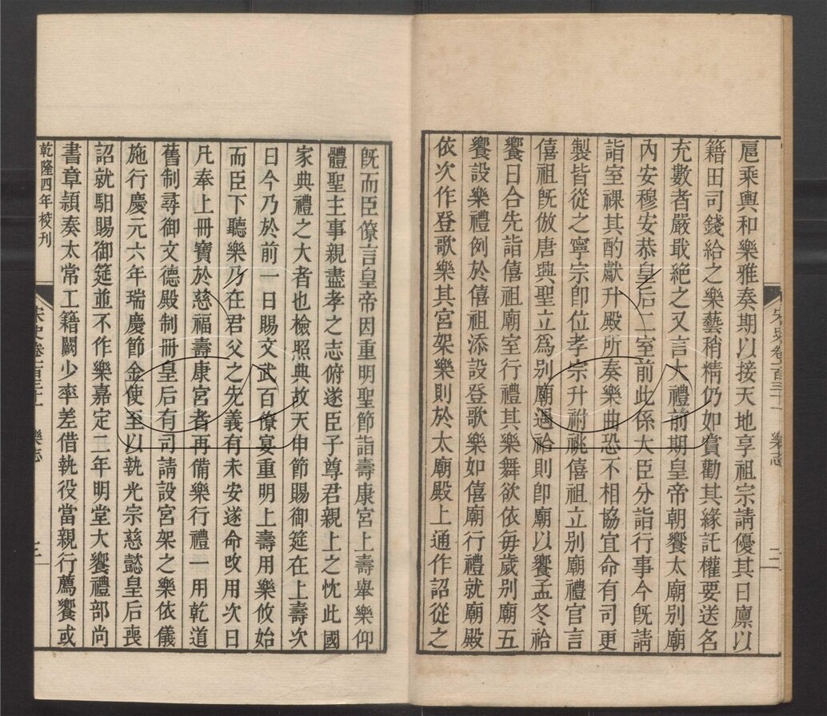 扈乘輿和樂雅奏期以接天地享祖宗請優其日廪以
籍田司錢給之樂藝稍精仍如賞勸其緣託權要送名
充數者嚴敢絶之又言大禮前期皇帝朝饗太廟别廟
内安穆安恭皇后二室前此係大臣分詣行事今旣請
詣室祼其酌獻升殿所奏樂曲恐不相協宜命有司更
製皆從之寧宗卽位孝宗升祔祧僖祖立别廟禮官言
僖祖旣倣唐興聖立爲别廟遇祫則卽廟以饗孟冬祫
饗日合先詣僖祖廟室行禮其樂舞欲依每歲别廟五
饗設樂禮例於僖祖添設登歌樂如僖廟行禮就廟殿
依次作登歌樂其宮架樂則於太廟殿上通作詔從之
宋史卷一百三十一 樂志 二
旣而臣僚言皇帝因重明聖節詣壽康宮上壽舉樂仰
體聖主事親盡孝之志俯遂臣子尊君親上之忱此國
家典禮之大者也檢照典故天申節賜御筵在上壽次
日今乃於前一日賜文武百僚宴重明上壽用樂攸始
而臣下聽樂乃在君父之先義有未安遂命攺用次日
凡奉上冊寶於慈福壽康宮者再備樂行禮一用乾道
舊制尋御文德殿制冊皇后有司請設宮架之樂依儀
施行慶元六年瑞慶節金使至以執光宗慈懿皇后喪
詔就馹賜御筵並不作樂嘉定二年明堂大饗禮部尚
書章穎奏太常工籍闕少率差借執役當親行薦饗或
乾隆四年校刊
宋史卷一百三十一 樂志 三